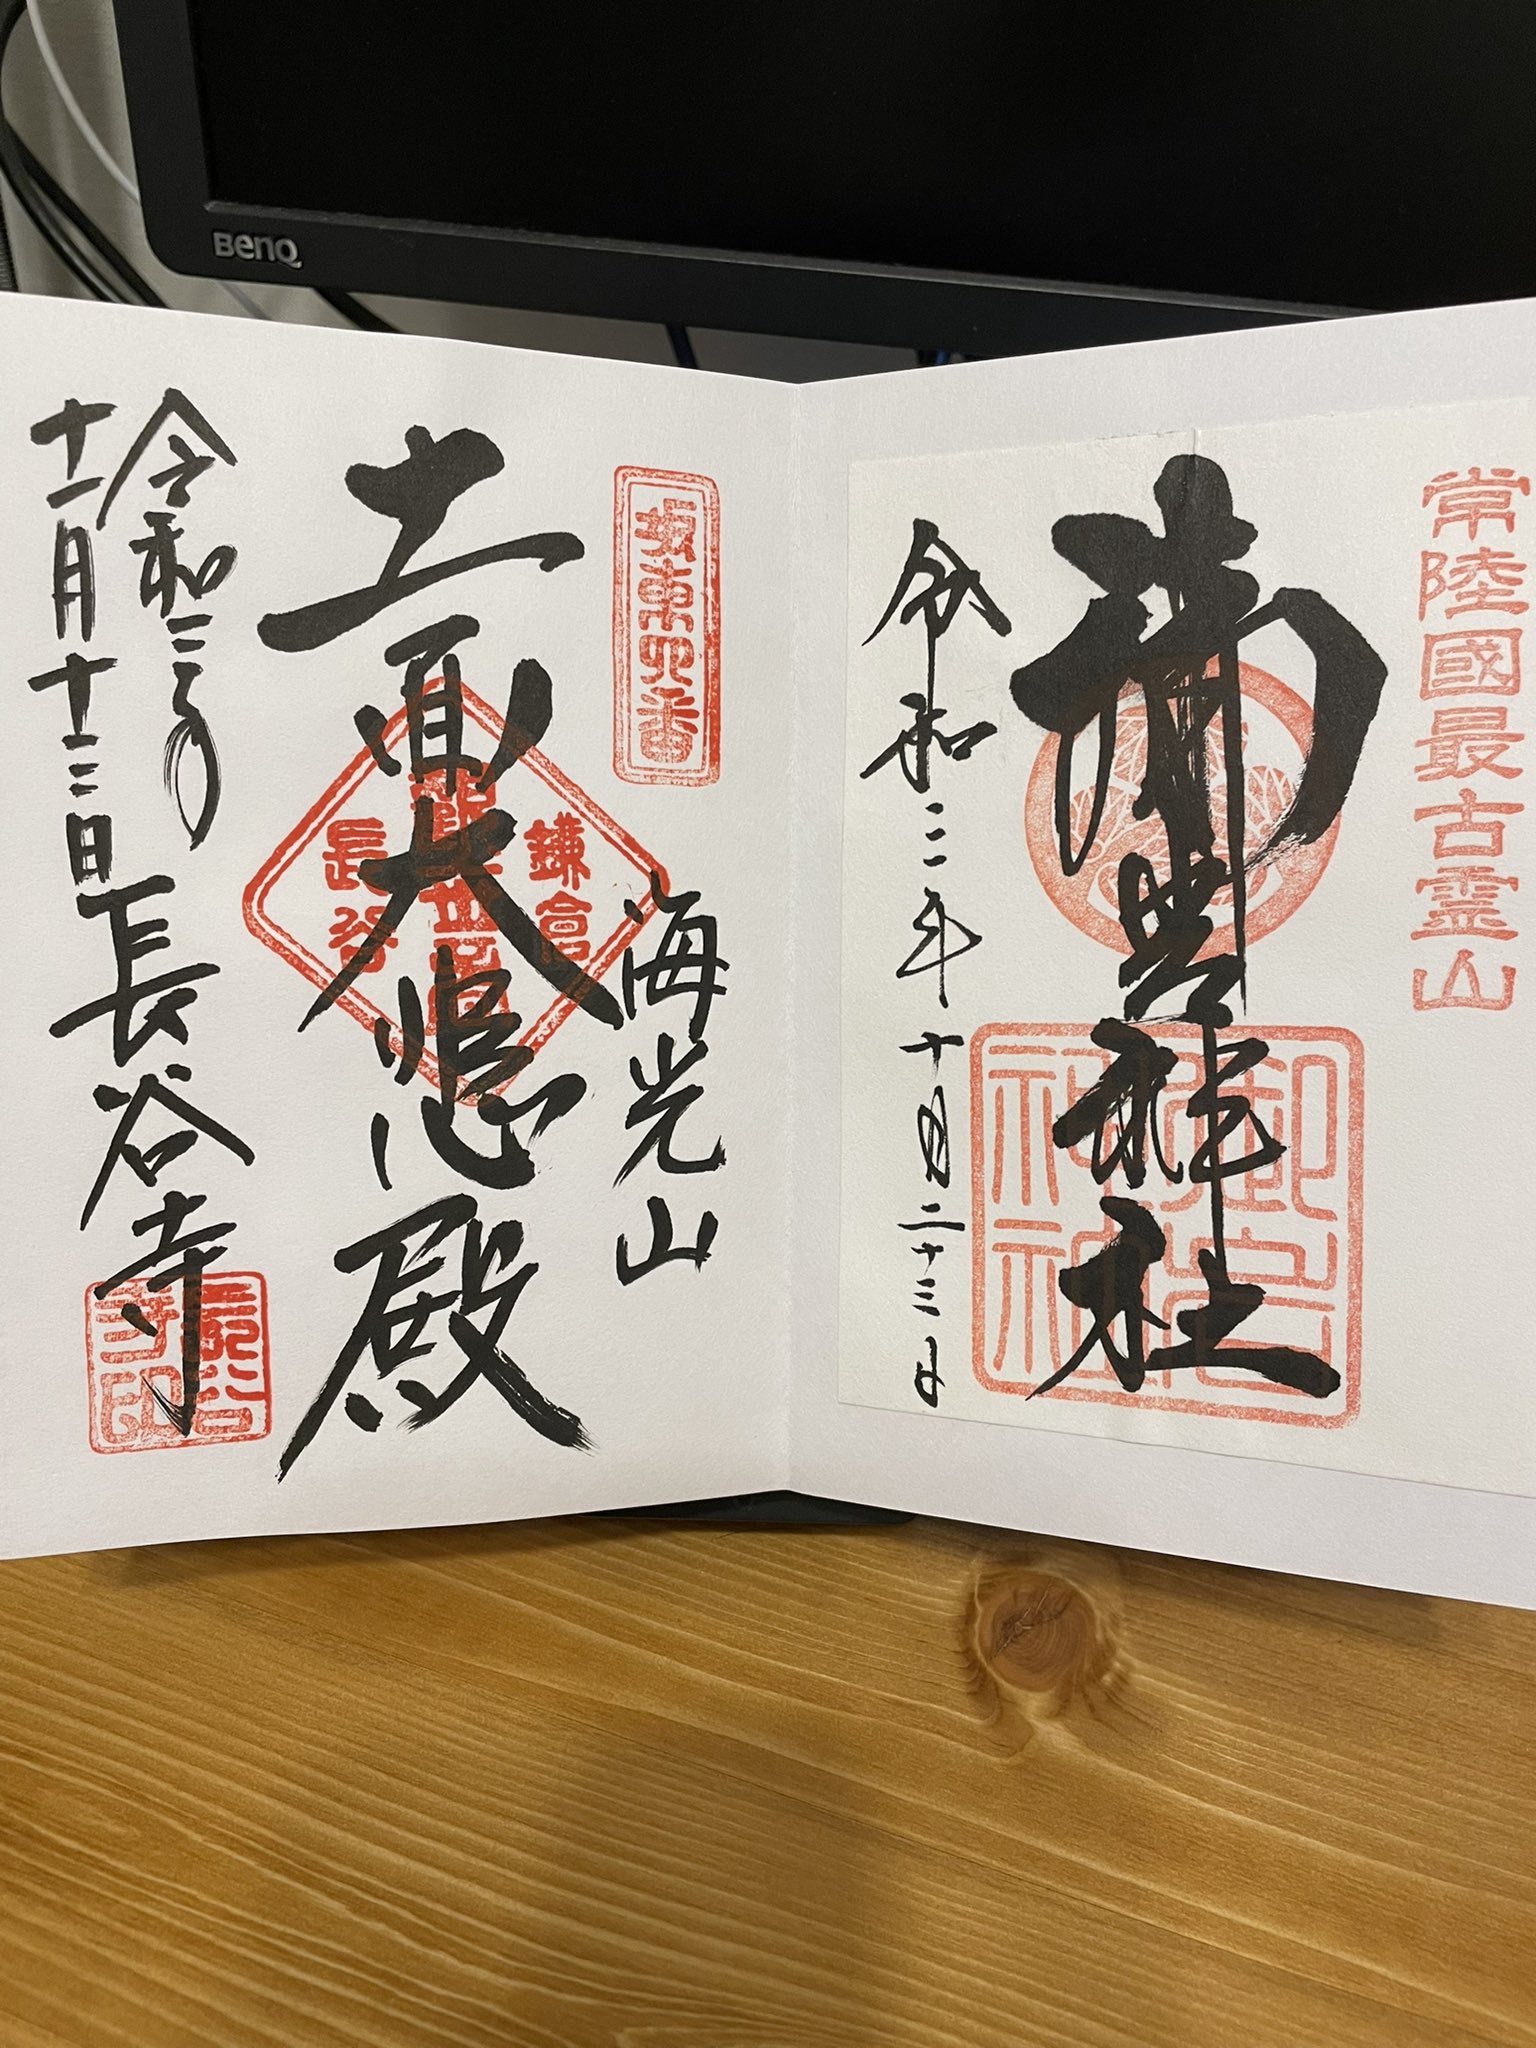 常陸國最古霊山
御岩神社
御岩神社
令和二年十月二十三日
坂東四番
海光山
十一面大悲殿
鎌倉
長谷
令和二年
十一月十三日
長谷寺
長谷寺印
BenQ